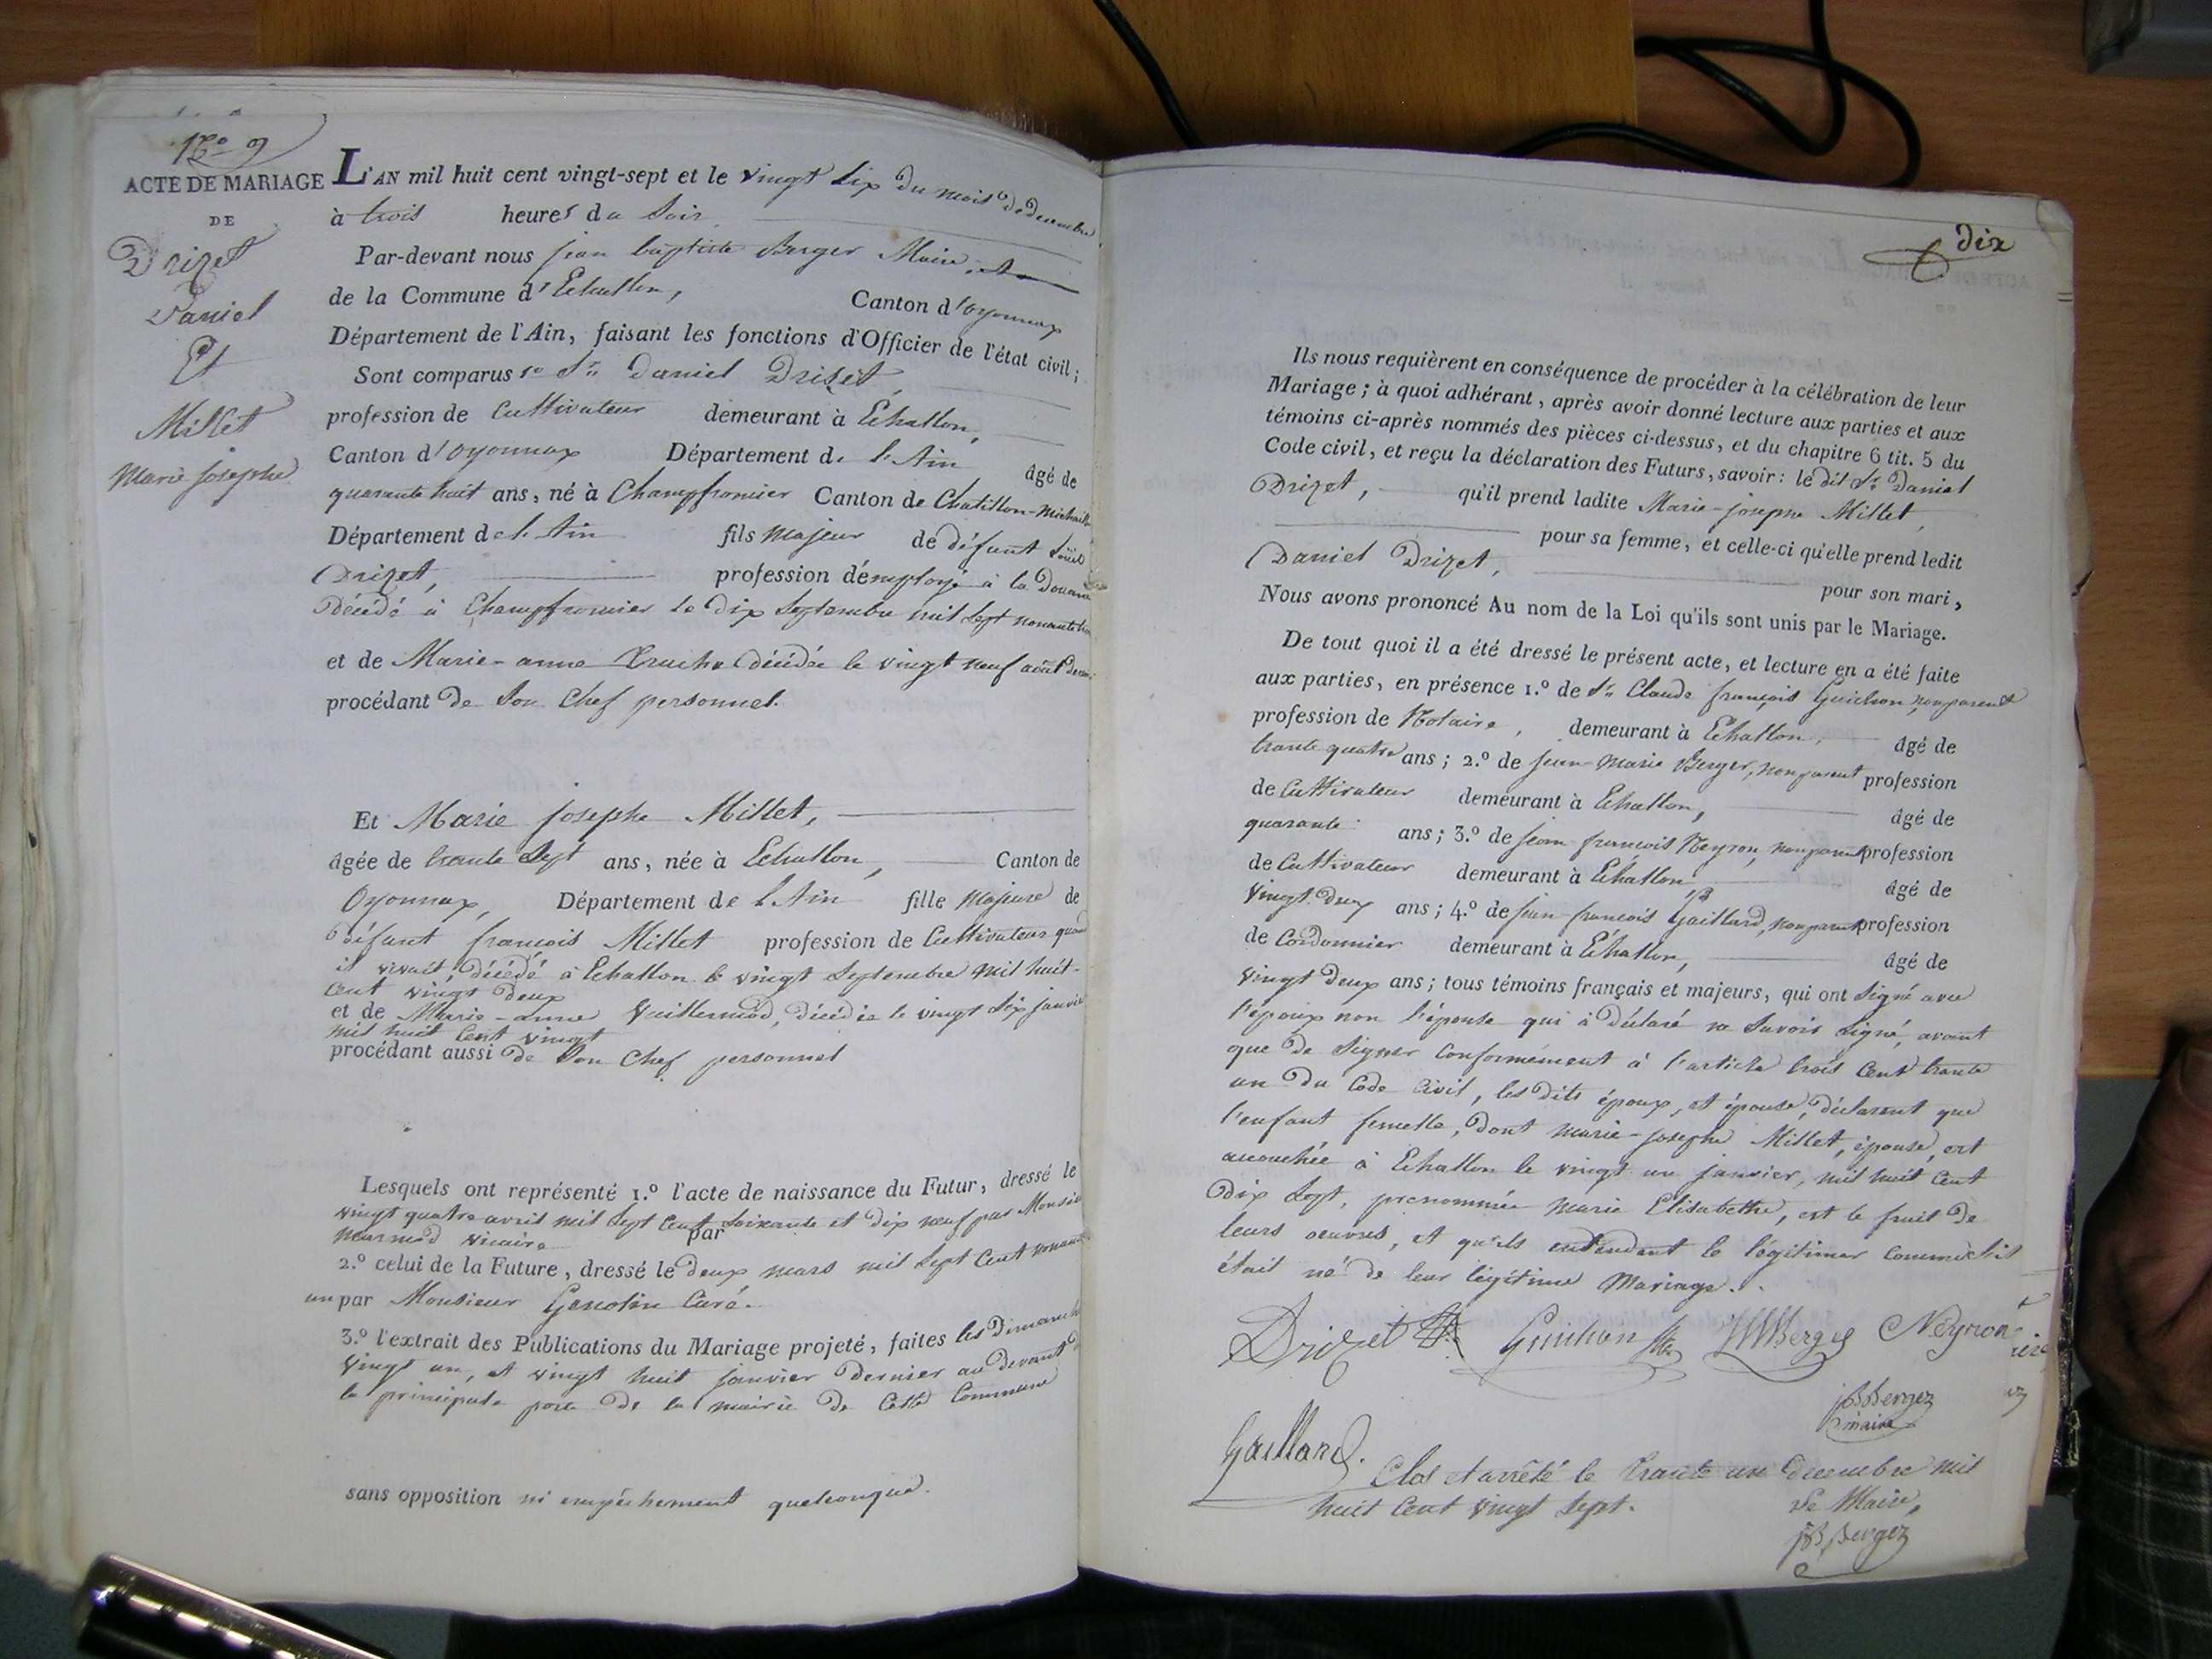 N.o 9
ACTE DE MARIAGE
DE
Drizet
Daniel
Et
Millet
Marie josephe
L'AN mil huit cent vingt-sept et le vingt six du mois de decembre
à trois heures du soir
Par-devant nous jean baptiste Berger Maire,
de la Commune d'Echallon, Canton d'oyonnax
Département de l'Ain, faisant les fonctions d'Officier de l'état civil ;
Sont comparus 1o Sr. Daniel Drizet
profession de Cultivateur demeurant à Echallon,
Canton d'oyonnax Département de l'Ain âgé de
quarante huit ans, né à Champfromier Canton de Chatillon-Michaille
Département de l'Ain fils Majeur de défunt Loüis
Drizet, profession d'employé à la Douane
Décédé à Champfromier le dix septembre mil sept nonante
et de Marie-anne Truche décédée le vingt neuf août
procédant de Son Chef personnel.
Et Marie josephe Millet,
âgée de trente sept ans, née à Echallon, Canton de
Oyonnax, Département de l'Ain fille Majeure de
défunt françois Millet profession de Cultivateur quand
il vivait, décédé à Echallon le vingt septembre mil huit-
cent vingt deux
et de Marie-anne Vuillermod, décédée le vingt six janvier
mil huit cent vingt
procédant aussi de Son Chef personnel
Lesquels ont représenté 1.º l'acte de naissance du Futur, dressé le
vingt quatre avril mil sept cent soixante et dix neuf par Monsieur
vicaire par
2.º celui de la Future, dressé le deux mars mil sept cent nonante
un par Monsieur Genolin Curé.
3.º l'extrait des Publications du Mariage projeté, faites les Dimanche
vingt un, et vingt huit janvier dernier au devant de
la principale porte de la mairie de Cette Commune
sans opposition ni empêchement quelconque.
dix
Ils nous requièrent en conséquence de procéder à la célébration de leur
Mariage ; à quoi adhérant, après avoir donné lecture aux parties et aux
témoins ci-après nommés des pièces ci-dessus, et du chapitre 6 tit. 5 du
Code civil, et reçu la déclaration des Futurs, savoir : le dit Sr. Daniel
Drizet, qu'il prend ladite Marie-josephe Millet,
pour sa femme, et celle-ci qu'elle prend ledit
Daniel Drizet,
pour son mari,
Nous avons prononcé Au nom de la Loi qu'ils sont unis par le Mariage.
De tout quoi il a été dressé le présent acte, et lecture en a été faite
aux parties, en présence 1.º de Sr. Claude françois Guichon, non parent
profession de Notaire, demeurant à Echallon, âgé de
trente quatre ans ; 2.º de jean-Marie Berger, non parent profession
de Cultivateur demeurant à Echallon, âgé de
quarante ans ; 3.º de jean-françois Neyron, non parent profession
de Cultivateur demeurant à Echallon, âgé de
vingt deux ans ; 4.º de jean-françois Gaillard, non parent profession
de Cordonnier demeurant à Echallon, âgé de
vingt deux ans ; tous témoins français et majeurs, qui ont signé avec
l'époux non l'épouse qui à déclaré ne savoir signé, avant
que de signer conformément à l'article trois cent trente
un du Code Civil, les dits époux, et épouse, déclarent que
l'enfant femelle, dont marie-josephe Millet, épouse, est
accouchée à Echallon le vingt un janvier, mil huit cent
dix sept, prenommée Marie Elisabethe, est le fruit de
leurs oeuvres, et qu'ils entendent le légitimer comme s'il
était né de leur légitime Mariage.
Drizet Guichon JMBerger Neyron
JBBerger
maire
Gaillard.
Clos et arrêté le trente un decembre mil
huit cent vingt sept.
Le Maire,
JBBerger